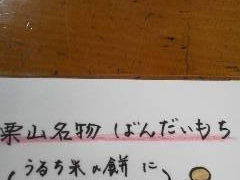 栗山名物 ばんだいもち
(うるち米の餅に